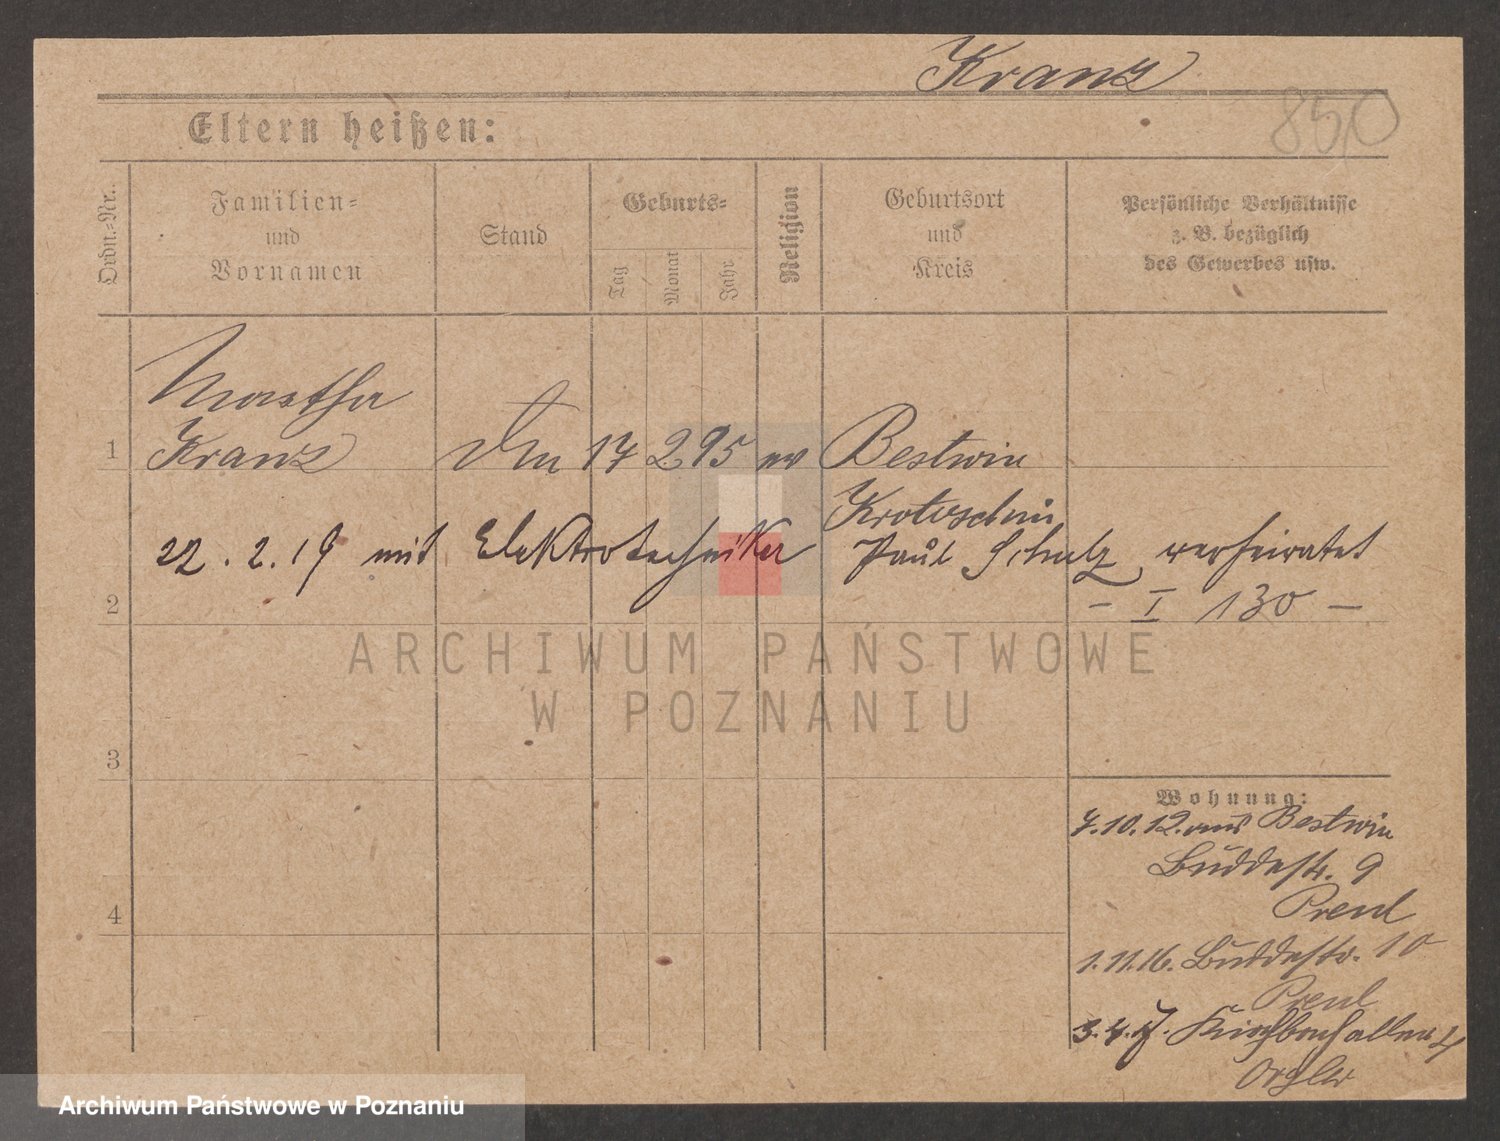 Kranz
850
Eltern heißen:
Ordn.-Nr.
Familien-
und
Vornamen
Stand
Geburts-
Tag
Monat
Jahr
Religion
Geburtsort
und
Kreis
Persönliche Verhältnisse
z. B. bezüglich
des Gewerbes usw.
Martha
1 Kranz 17 2 95 ev Bestwin
Krotoschin
22.2.19 mit Elektrotechniker Paul Schulz verheiratet
2 – I 130 –
ARCHIWUM PAŃSTWOWE
W POZNANIU
3
Wohnung:
7.10.12. aus Bestwin
Buddestr. 9
4
1.11.16. Buddestr. 10
3.4.17.
Archiwum Państwowe w Poznaniu